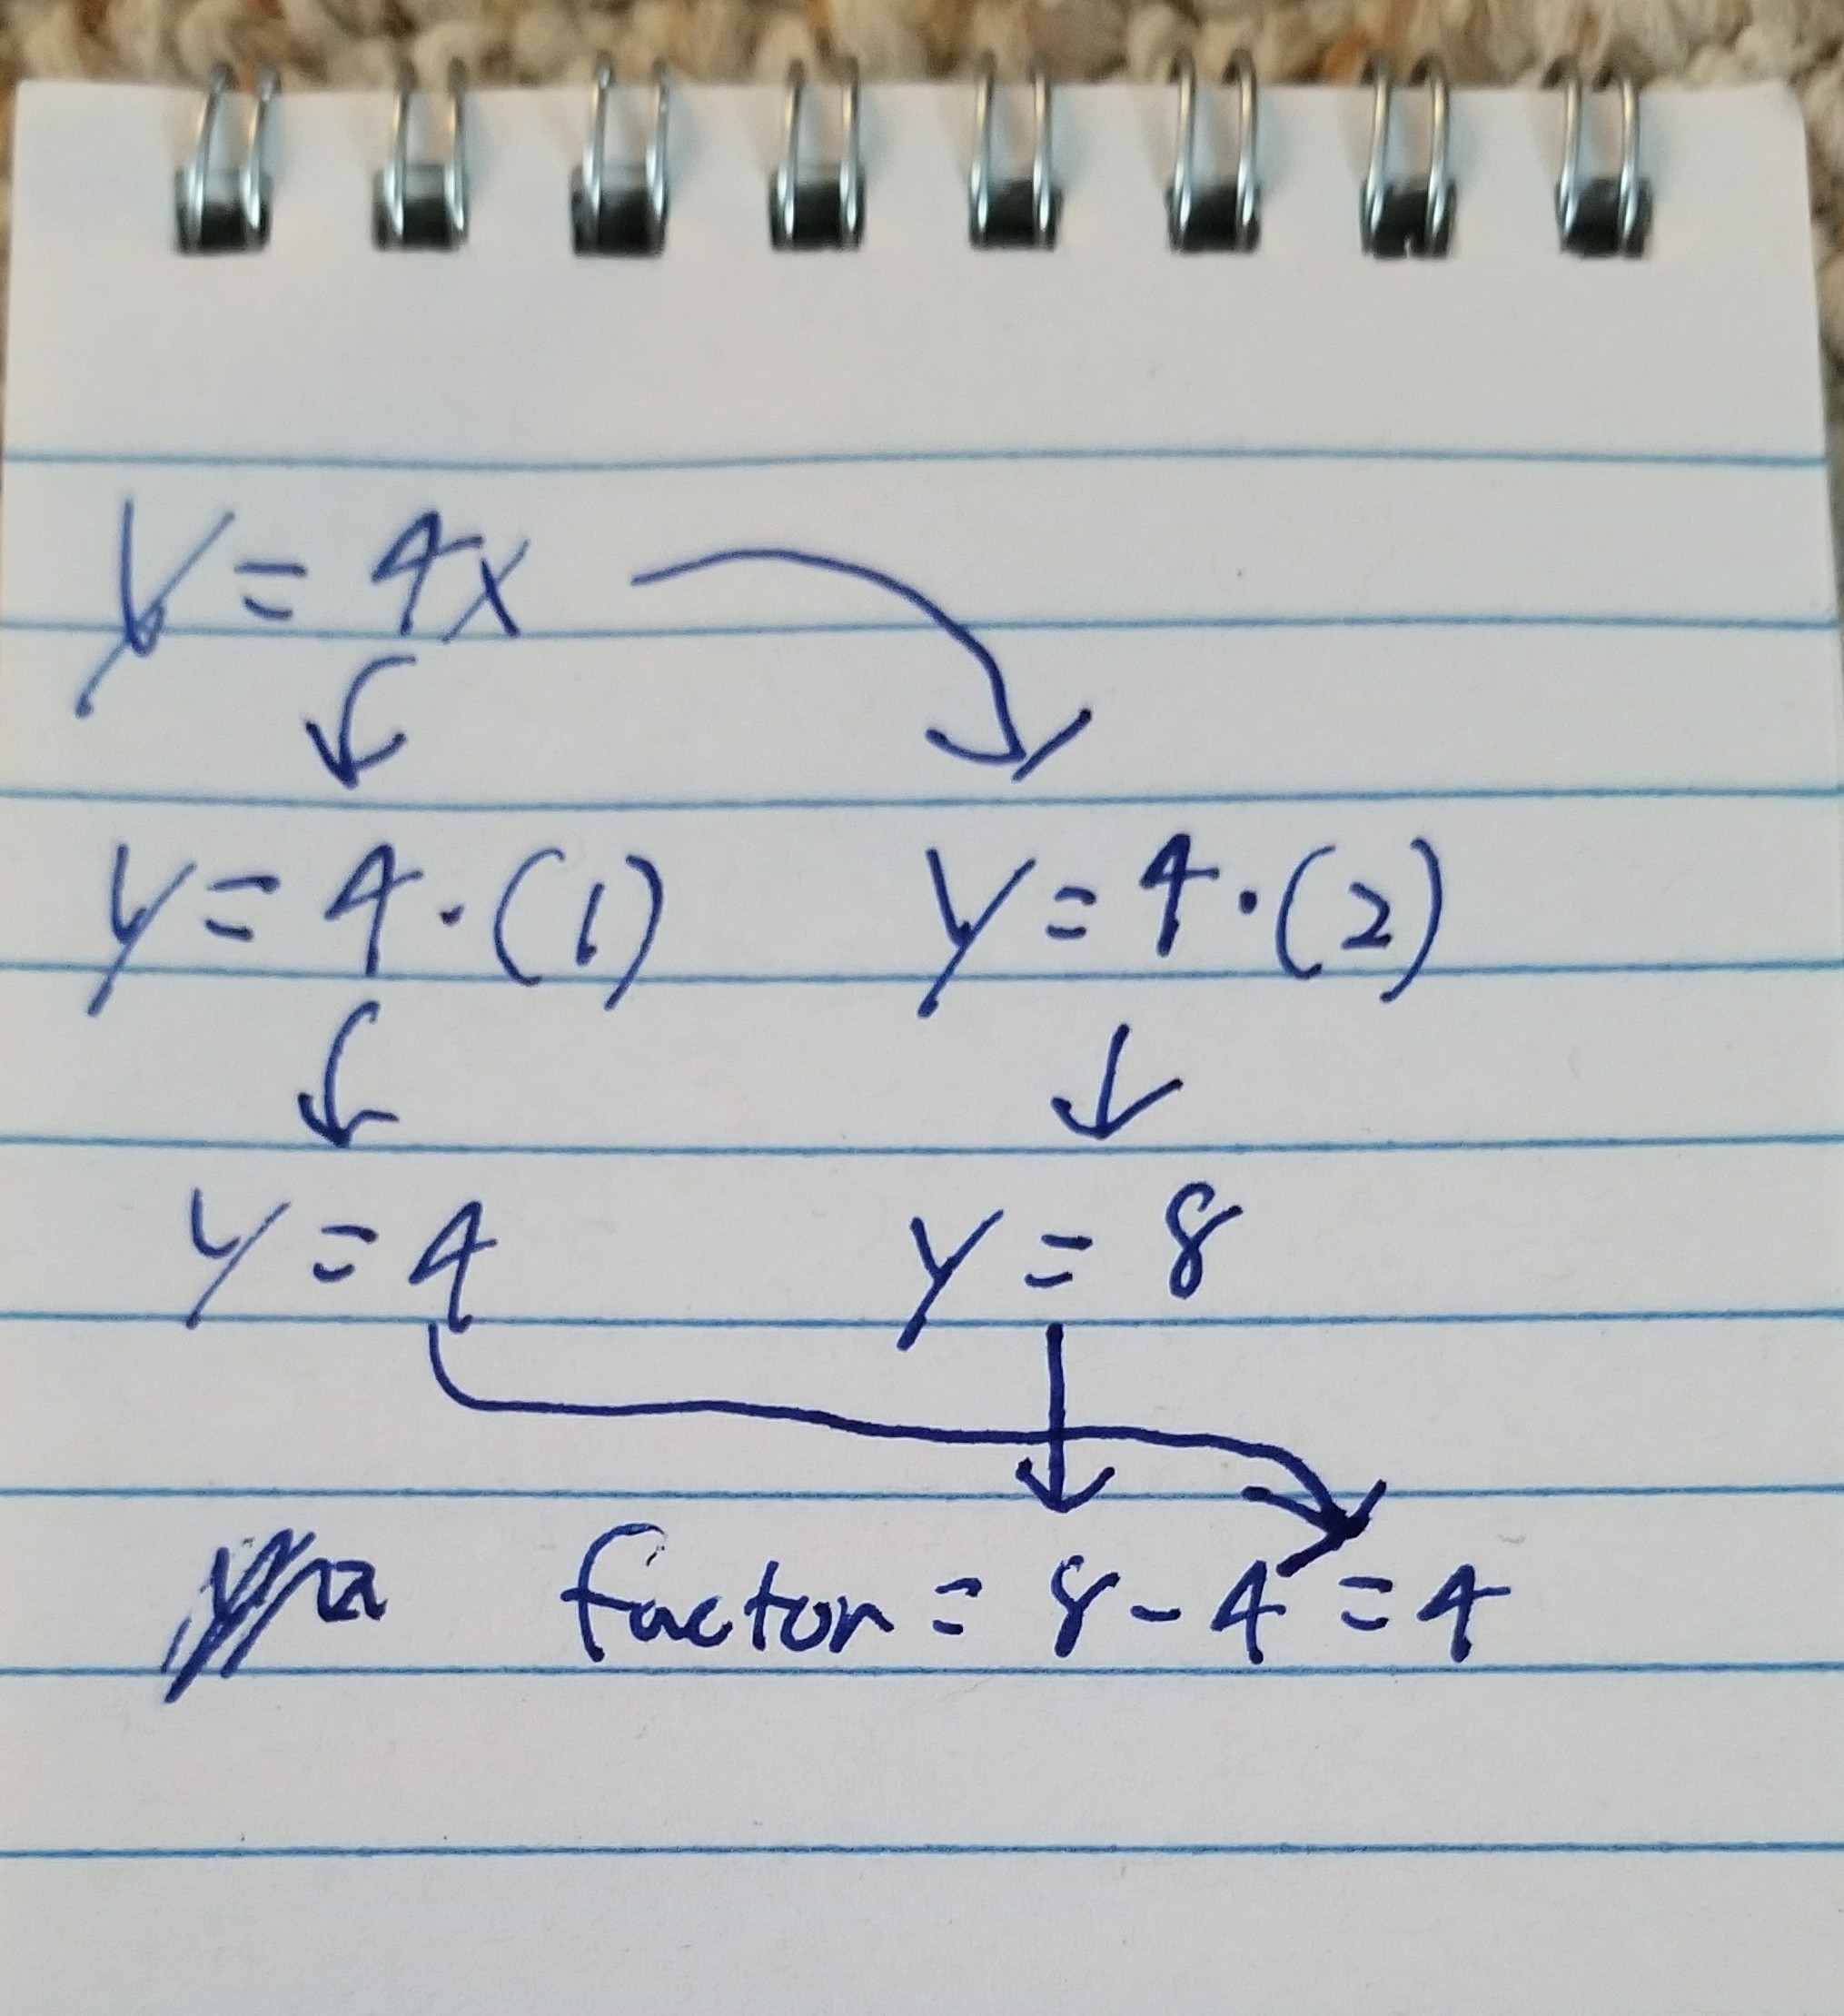 y = 4x
y = 4 · (1) y = 4 · (2)
y = 4 y = 8
factor = 8 - 4 = 4